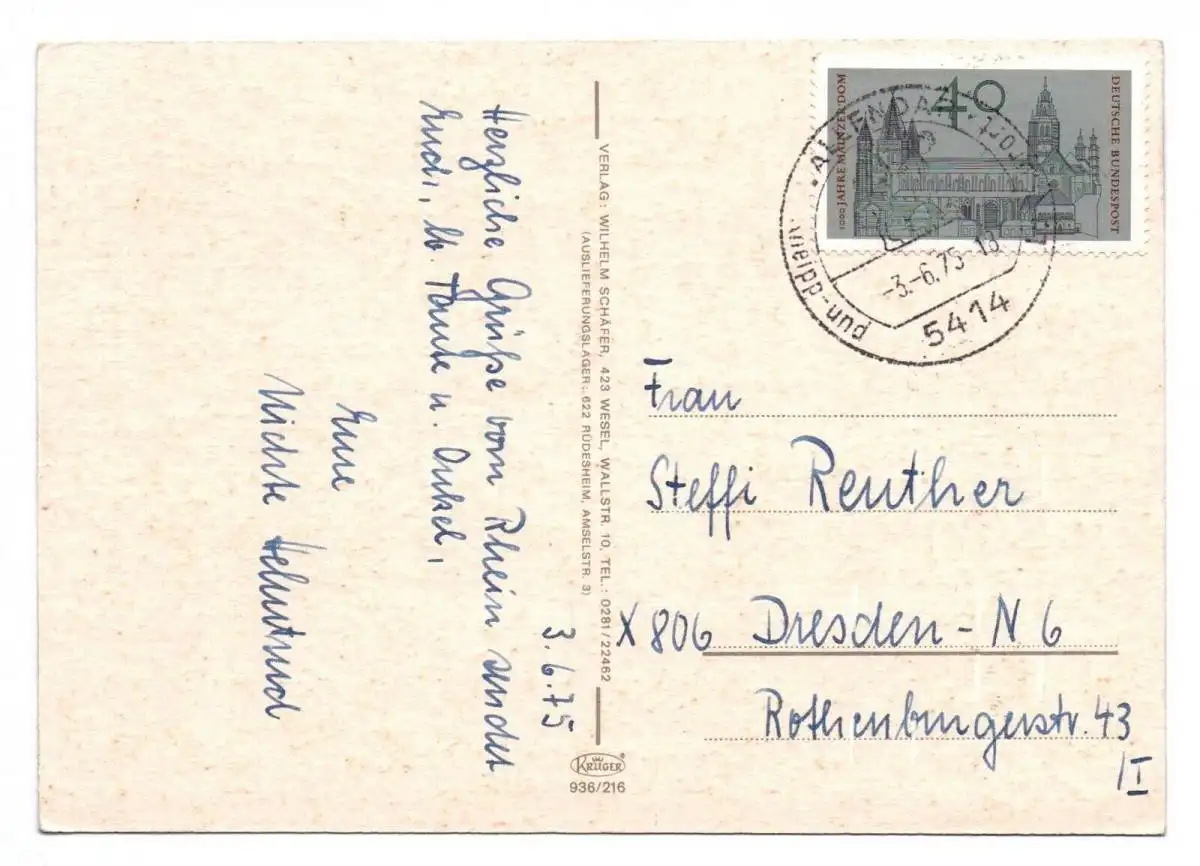 3.6.75
Herzliche Grüße vom Rhein sendet
Euch, lb. Tante u. Onkel,
Eure
Nichte Helmtrud
VERLAG: WILHELM SCHÄFER, 423 WESEL, WALLSTR. 10, TEL.: 0281/22462
(AUSLIEFERUNGSLAGER: 622 RÜDESHEIM, AMSELSTR. 3)
KRÜGER
936/216
40
DEUTSCHE BUNDESPOST
1000 JAHRE MAINZER DOM
-3.-6.75-18
5414
Kneipp-und
Frau
Steffi Reuther
X 806 Dresden-N 6
Rothenburgerstr. 43
/I